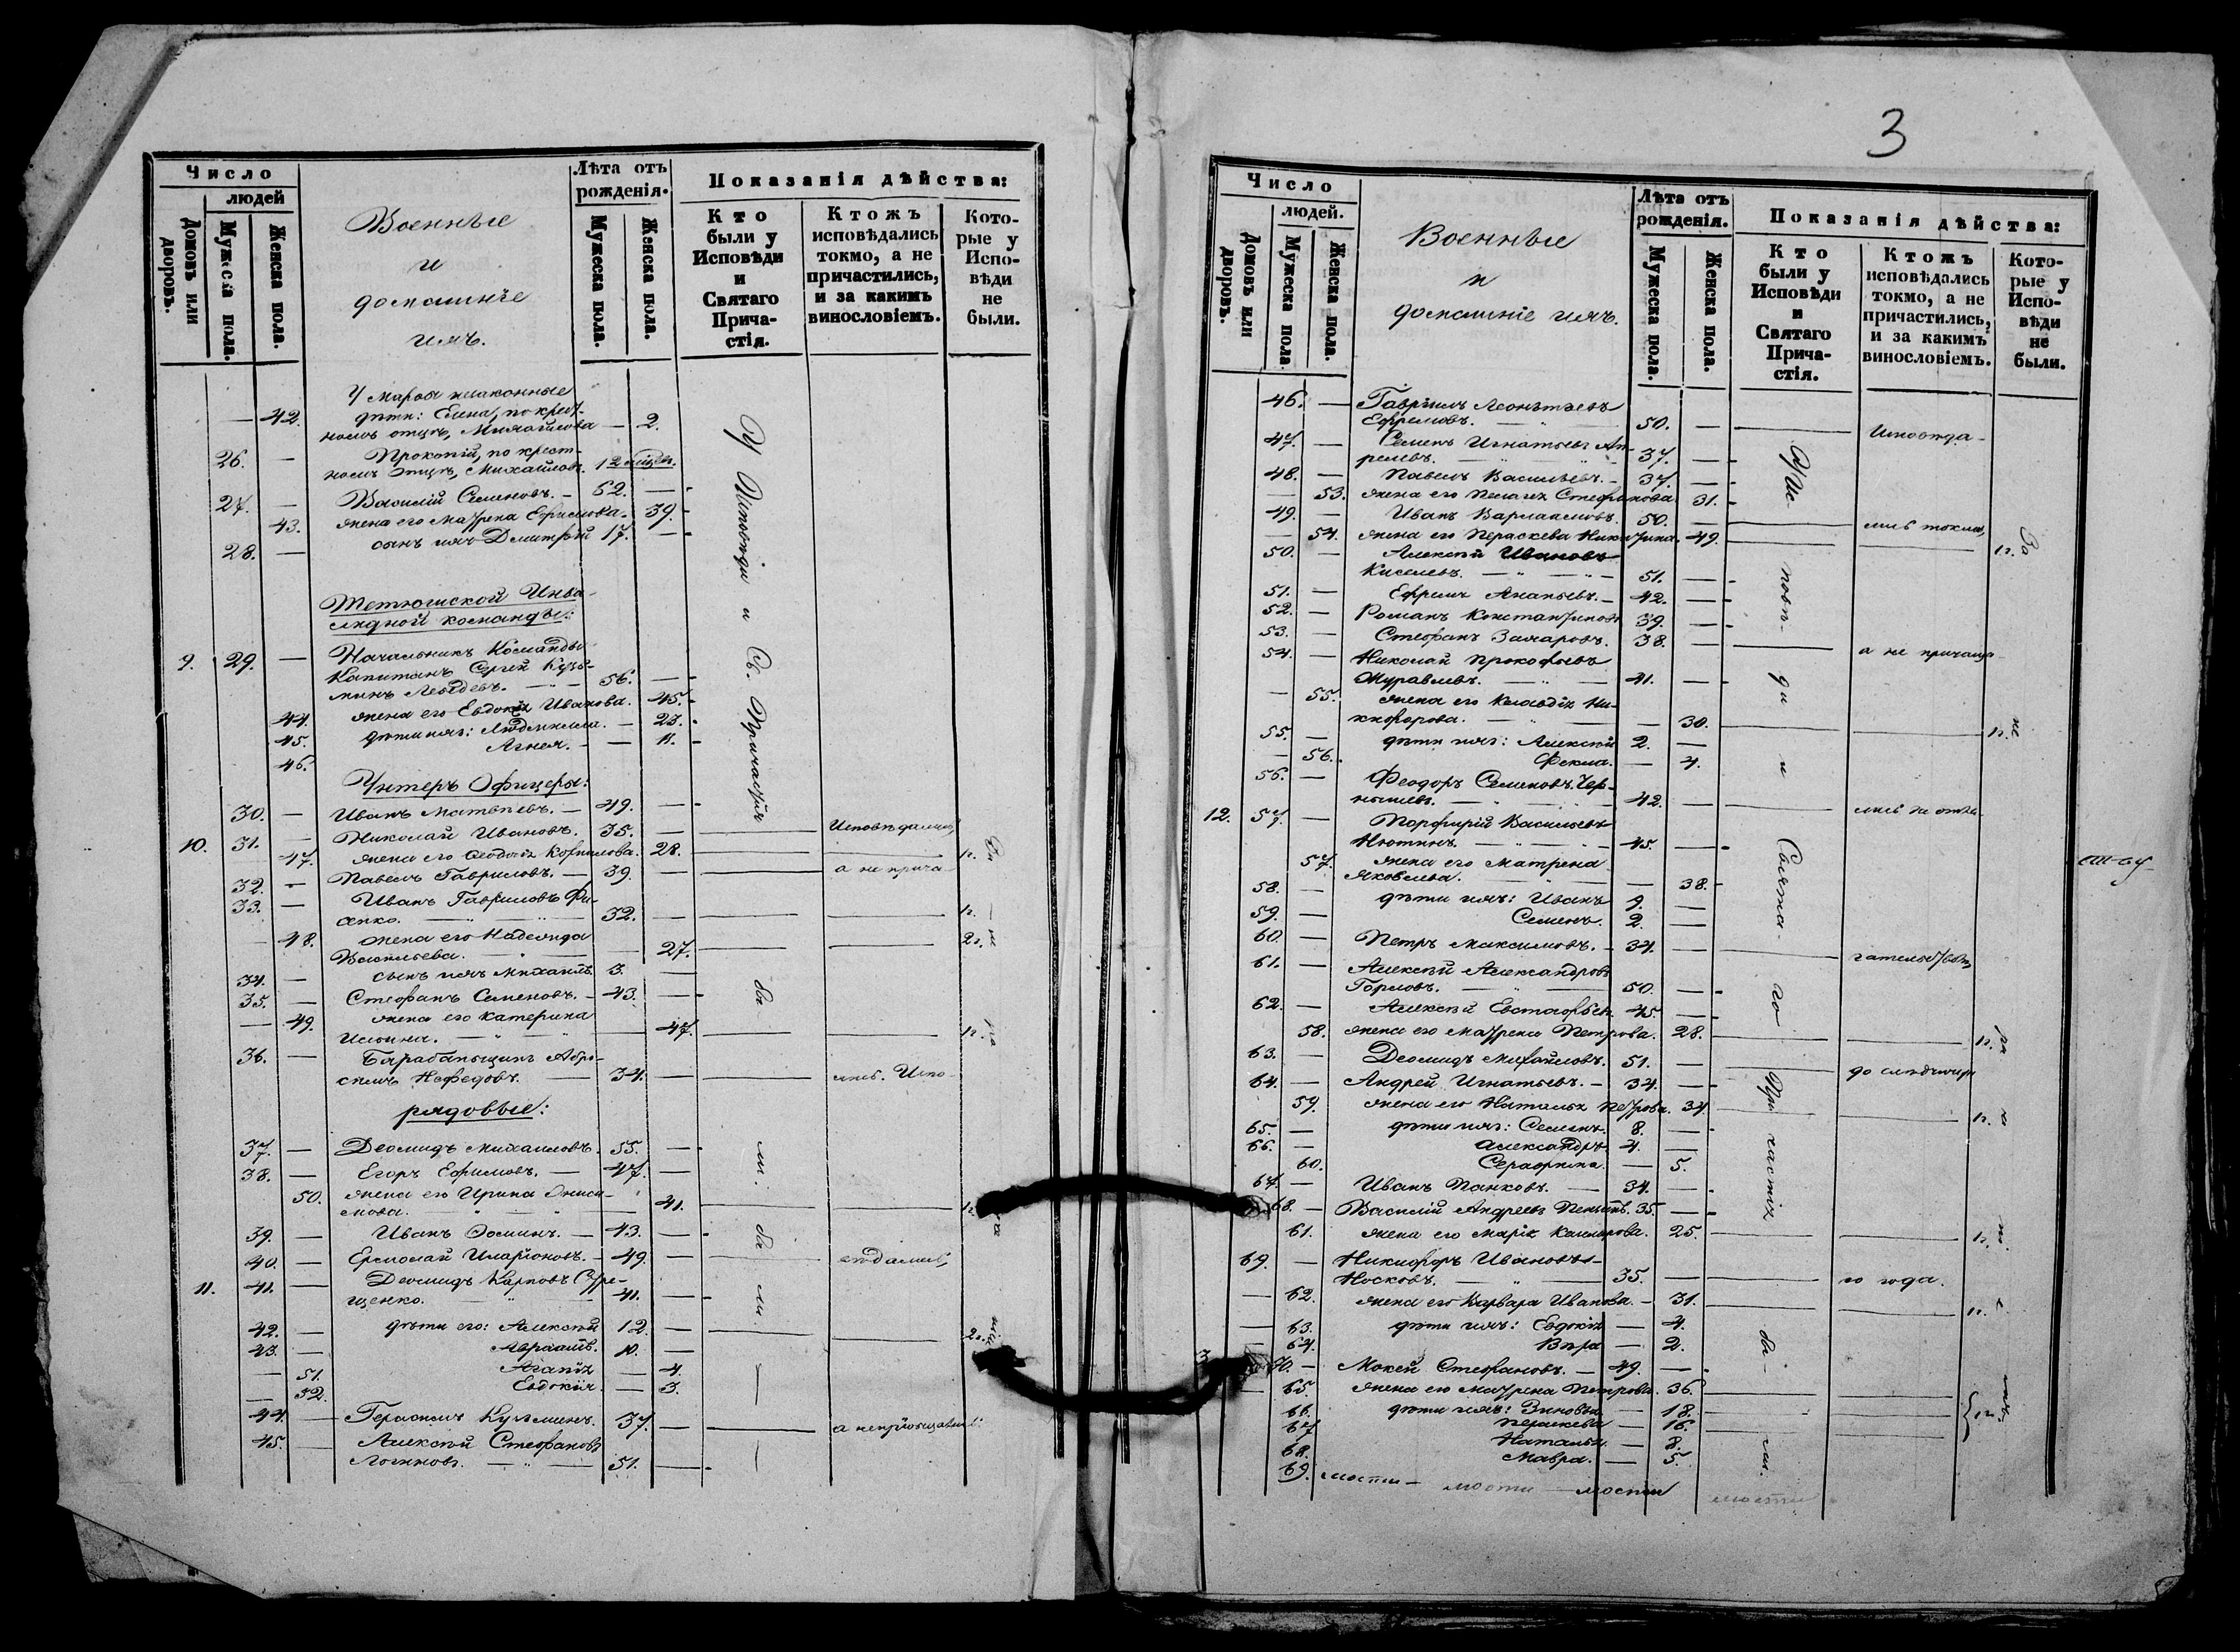 Число
людей
Домовъ или дворовъ.
Мужеска пола.
Женска пола.
Военные
и
домашніе
ихъ.
Лѣта отъ
рожденія.
Мужеска пола.
Женска пола.
Показанія дѣйства:
Кто
были у
Исповѣди
и
Святаго
Прича-
стія.
Ктожъ
исповѣдались
токмо, а не
причастились,
и за какимъ
винословіемъ.
Кото-
рые у
Испо-
вѣди
не
были.
У Марѳы незаконные
— 42. дѣти: Елена, по крест-
номъ отцѣ, Михайлова — 2.
26. — Прокопій, по крест-
номъ отцѣ, Михайловъ. 12 мѣсяц.
27. — Василій Семеновъ. — 62. —
43. жена его Матрена Ефимова. 39.
28. — сынъ ихъ Димитрій 17. —
Тетюшской Инва-
лидной команды:
9. 29. — Начальникъ Команды
Капитанъ Сергей Кузь-
минъ Лебедевъ. — 56. —
44. жена его Евдокія Иванова. 45.
45. дѣти ихъ: Людмила. — 23.
46. Агнея. — 11.
Унтеръ Офицеры:
30. — Иванъ Матвѣевъ. — 49. —
10. 31. — Николай Ивановъ. 35. — Исповѣдались,
47. жена его Ѳедосія Корнилова. 28. 1г.
32. — Павелъ Гавриловъ. — 39. — а не прича-
33. — Иванъ Гавриловъ Фи-
апко. — 32. — 1г.
— 48. жена его Надежда
Васильева. — 27. 2г.
34. — сынъ ихъ Михаилъ 3. —
35. — Стефанъ Семеновъ. — 43. —
— 49. жена его Катерина
Ильина. — 47. 1г.
36. — Барабанщикъ Абро-
симъ Нефедовъ. — 34. — лись. Испо-
рядовые:
37. — Деомидъ Михаиловъ. 55. —
38. — Егоръ Ефимовъ. — 47. —
50. жена его ИринаОниси-
мова. — 41.
39. — Иванъ Ѳоминъ. — 43. —
40. — Ермолай Иларіоновъ. — 49. — вѣдались,
11. 41. — Деомидъ Карповъ Суре-
щенко. — 41. —
42. — дѣти его: Алексѣй 12. — 2г.
43. — Авраамъ. 10. —
— 51. Агапія — 4.
— 52. Евдокія. — 3.
44. — Герасимъ Кузьминъ. 37. — а непріобщались:
45. — Алексѣй Стефановъ
Логиновъ. — 51. —
У Исповѣди и Св. Причастія
бы
ли.
бы
ли.
3
Число
людей.
Домовъ или дворовъ.
Мужеска пола
Женска пола.
Военные
и
домашніе ихъ.
Лѣта отъ
рожденія.
Мужеска пола.
Женска пола.
Показанія дѣйства:
Кто
были у
Исповѣди
и
Святаго
Прича-
стія.
Ктожъ
исповѣдались
токмо, а не
причастились,
и за какимъ
винословіемъ.
Кото-
рые у
Испо-
вѣди
не
были.
46. — Гавріилъ Леонтьевъ
Ефремовъ. — 50. — Исповѣда-
47. — Семенъ Игнатьевъ Ап-
релевъ. 37. —
48. — Павелъ Васильевъ. — 37. —
— 53. жена его Пелагея Стефанова 31.
49. — Иванъ Варлаамовъ. 50. — лись токмо,
— 54. жена его Параскева Никитина. 49. 1г.
50. — Алексѣй Ивановъ
Киселевъ. — 51. —
51. — Ефремъ Ананьевъ. — 42. —
52. — Романъ Константиновъ 39. —
53. — Стефанъ Захаровъ. 38. —
54. — Николай Прокофьевъ а не причаща-
Журавлевъ. — 41. —
— 55. жена его Клавдія Ни-
кифорова. — 30. 1г.
55. — дѣти ихъ: Алексѣй 2. —
— 56. Фекла. — 4.
56. — Феодоръ Семеновъ Чер-
нышевъ. — 42. —
12. 57. — Порфирій Васильевъ
Нютинъ. — 45. —
57. жена его Матрена
Яковлева. — 38.
58. — дѣти ихъ: Иванъ 9. —
59. — Семенъ. 2. —
60. — Петръ Максимовъ. — 34. —
61. — Алексѣй Александровъ
Горловъ. — 50. —
62. — Алексѣй Евстафьевъ 45 —
58. жена его Матрена Петрова. 28. 1г.
63. — Деомидъ Михайловъ. 51. —
64. — Андрей Игнатьевъ. — 34. —
59. жена его Наталья Петрова. 34 1г.
65. — дѣти ихъ: Семенъ. 8. —
66. — Александръ 4. —
60. Серафима. — 5.
67. — Иванъ Панковъ. — 34. —
68. — Василій Андреевъ 35. —
61. жена его Марія 25. 1г.
69. — Никифоръ Ивановъ
Носковъ. — 35. — го года.
— 62. жена его Варвара Иванова. — 31. 1г.
— 63. дѣти ихъ: Евдокія — 4.
— 64. Вѣра — 2.
70. — Мокей Стефановъ. — 49. —
— 65. жена его Матрена Петрова. 36.
66. дѣти ихъ: Зиновья — 18.
67. Параскева — 16.
68. Наталья. — 8.
69. Мавра. — 5.
У Ис-
повѣ-
ди
и
Свята-
го
При
частія
бы
ли.